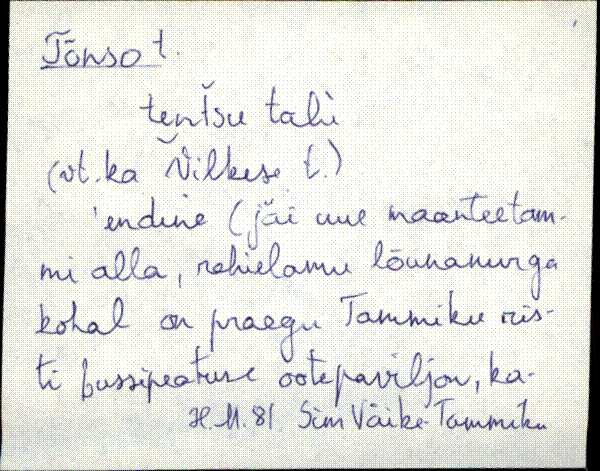 Tõnso t.
tentsu talu
(vt. ka Vilkese t.)
'endine (jäi uue maanteetam-
mi alla, rehielamu lõunanurga
kohal on praegu Tammiku ris-
ti bussipeatuse ootepaviljon, ka-
H.M. 81. Sim Väike-Tammiku